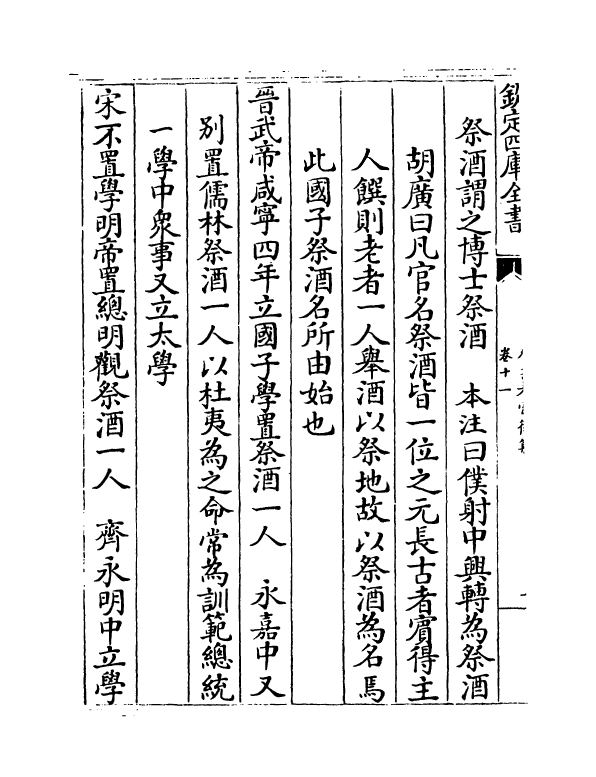 欽定四庫全書
卷十一
祭酒謂之博士祭酒　本注曰僕射中興轉為祭酒
胡廣曰凡官名祭酒皆一位之元長古者賓得主
人饌則老者一人舉酒以祭地故以祭酒為名馬
此國子祭酒名所由始也
晉武帝咸寧四年立國子學置祭酒一人　永嘉中又
別置儒林祭酒一人以杜夷為之命常為訓範總統
一學中衆事又立太學
宋不置學明帝置總明觀祭酒一人　齊永明中立學